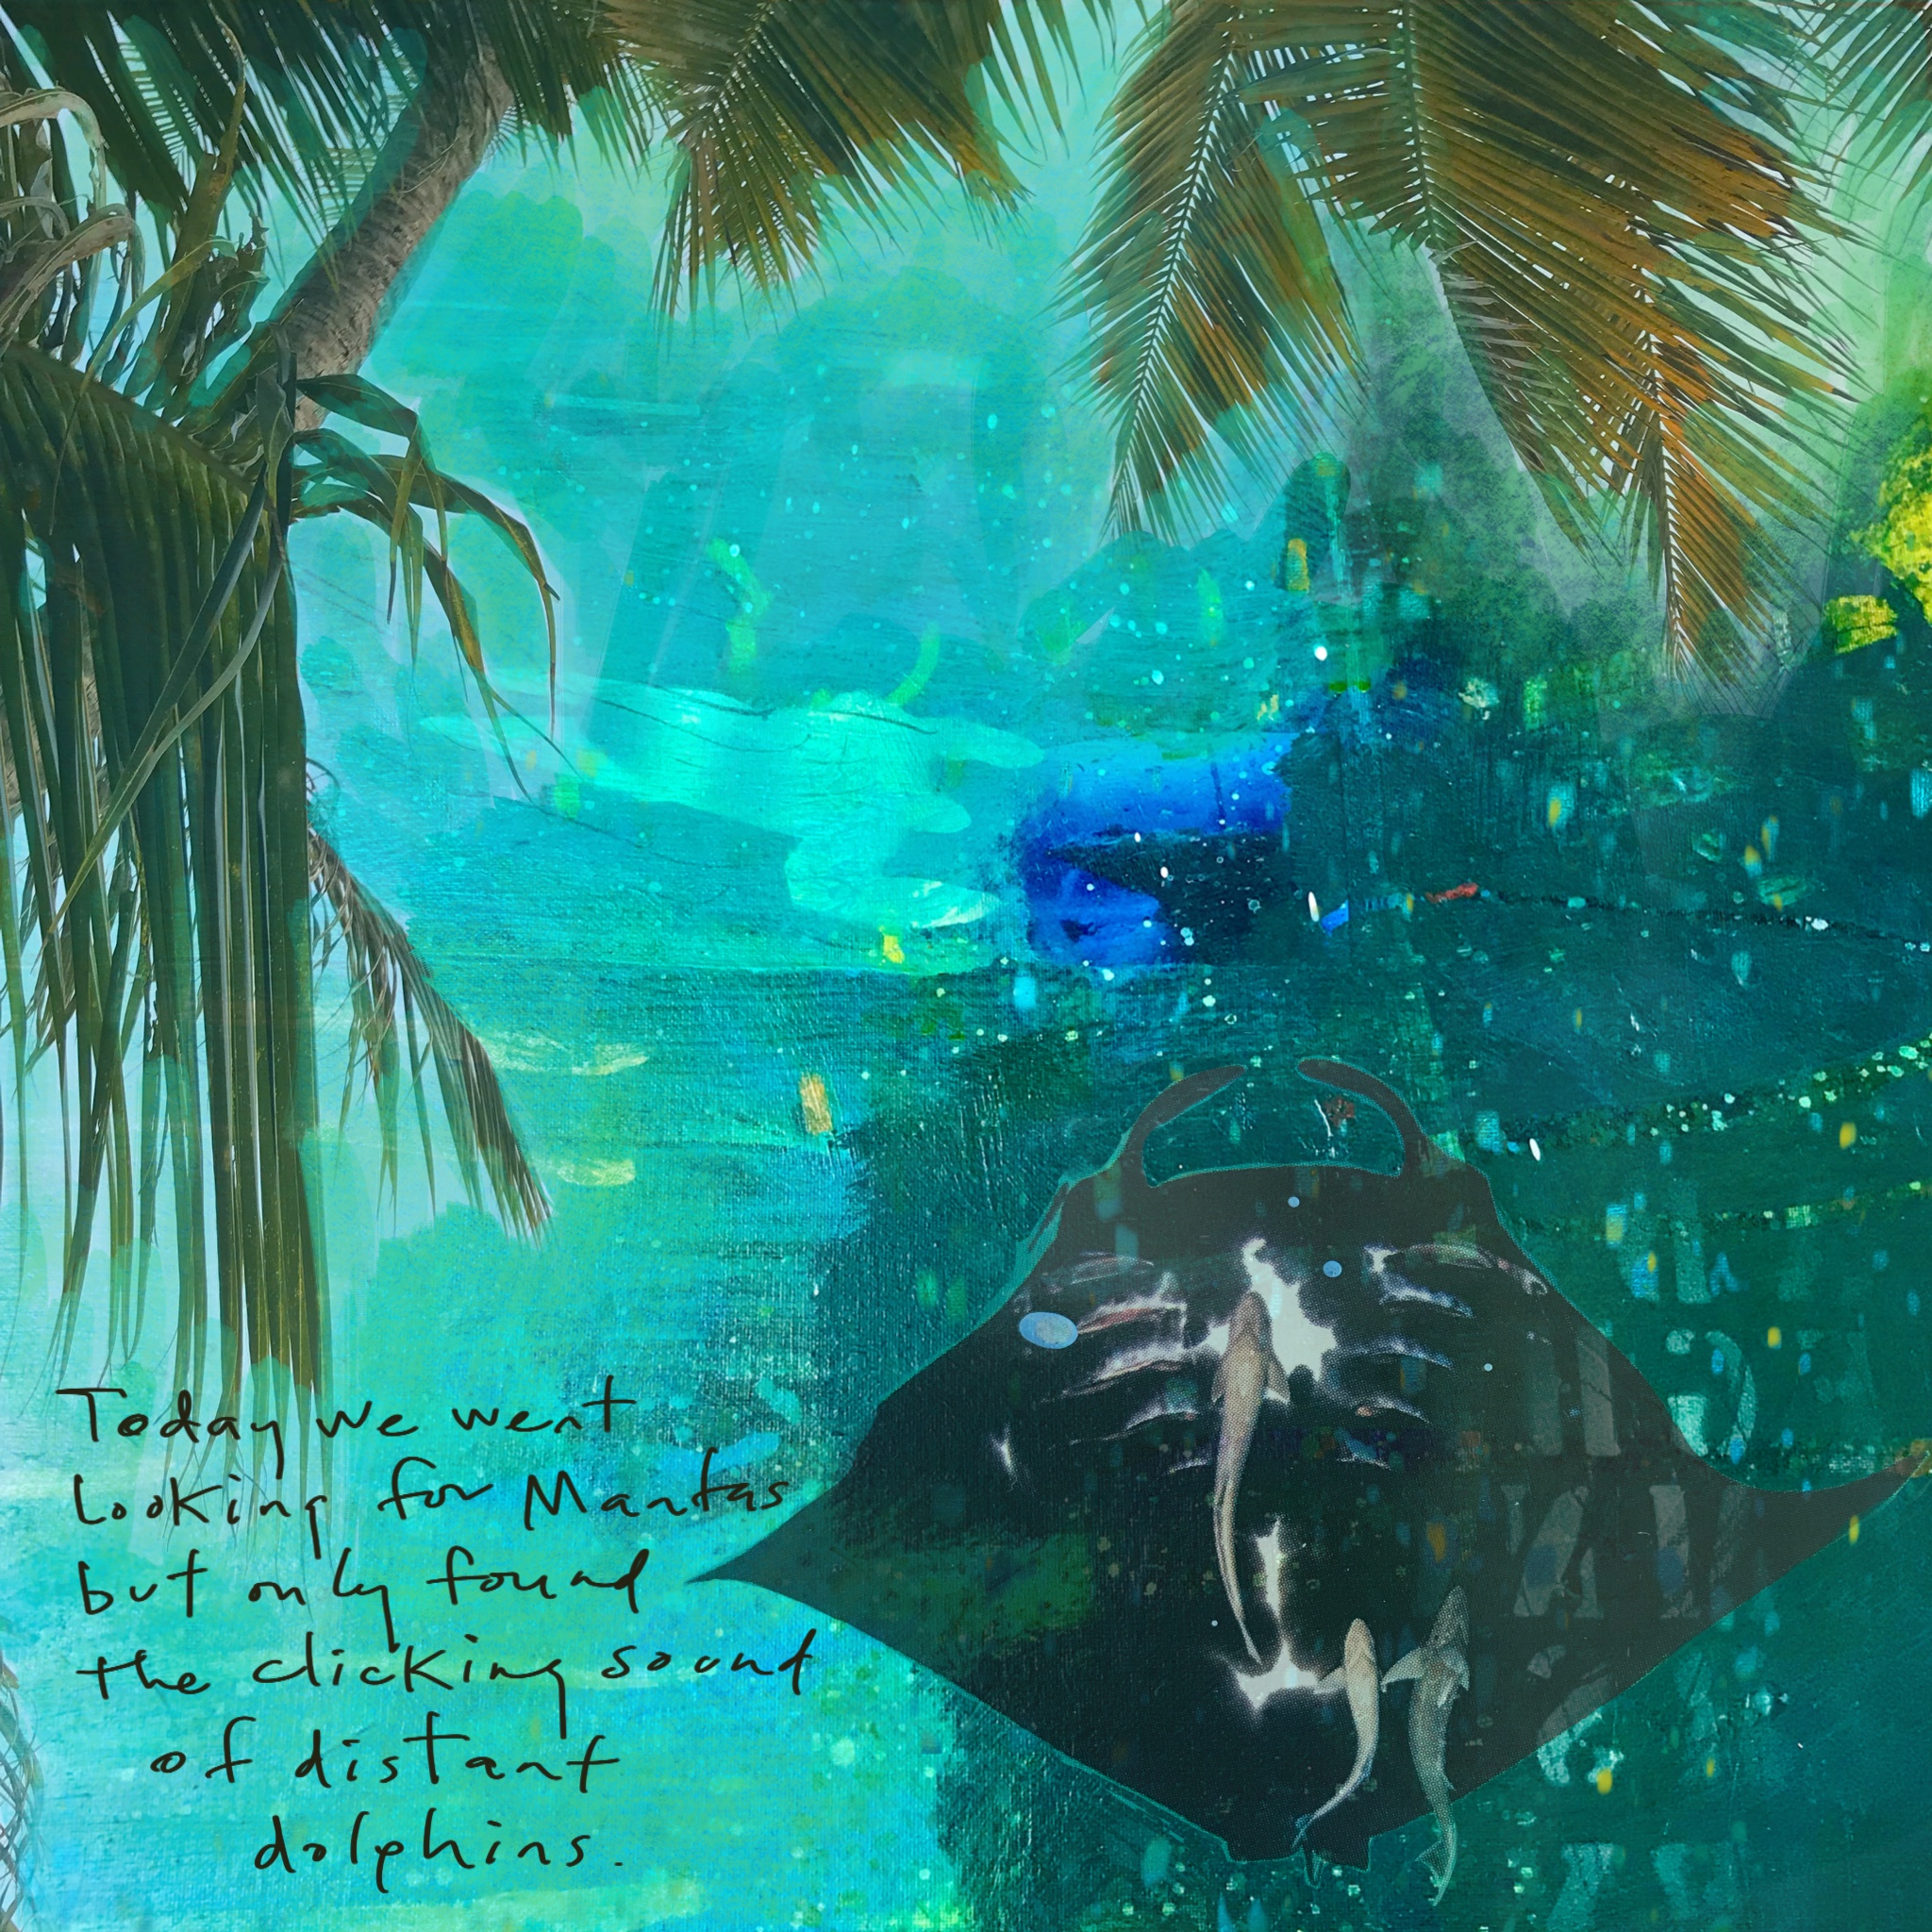 Today we went
looking for Mantas
but only found
the clicking sound
of distant
dolphins.